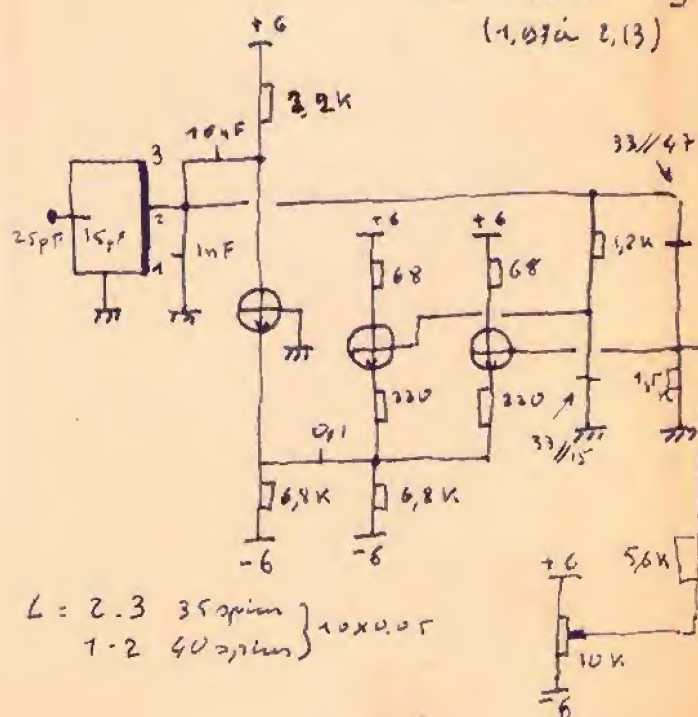 (1,97 à 2,13)
+6
2,2K
10nF
33//47
3
2
1
25pF
15pF
1nF
+6
+6
68
68
1,2K
220
220
1,5
K
33//15
0,1
6,8K
6,8K
-6
-6
+6
5,6K
10K
-6
L = 2.3 35 spires
1-2 40 spires
10x0.05